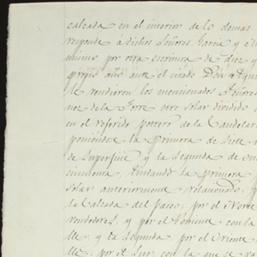 calzada en el interior de lo demas
responde á dichos Señores Garcia y
mismo por otra escritura de diez y
propio año ante el citado Don
le vendieron los mencionados Señores
nor de la Torre otro solar dividido
en el referido potrero de la Candelaria
poniendose la primera de siete
de superficie y la segunda de
cincuenta, lindando la primera
solar anteriormente relacionado,
la Calzada del paseo, por el Norte
vendedores, y por el Poniente con la
lle, y la segunda por el Oriente
lle, por el Sur con la que se